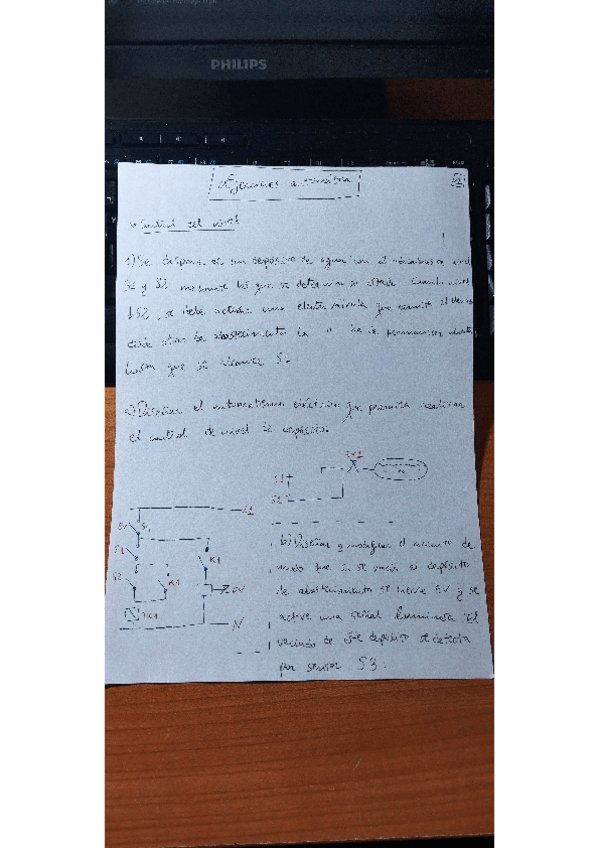 PHILIPS
Ejercicios automática
* Control del nivel
1) Se dispone de un depósito de agua con 2 en nivel
S1 y S2 mediante los que se determina su estado. Cuando
S2, se debe activar una electroválvula que permite el
desde otro de abastecimiento. La ha de permanecer abierta
hasta que se alcance S1.
a) Diseñar el automatismo eléctrico que permita realizar
el control de nivel de depósito.
S1
S2
L1
S1
S2
K1
K1
EV
KA1
N
b) Diseñar y modificar el circuito de
modo que si se vacía el depósito
de abastecimiento se cierre EV y se
active una señal luminosa. El
vaciado de este depósito se detecta
por sensor S3.